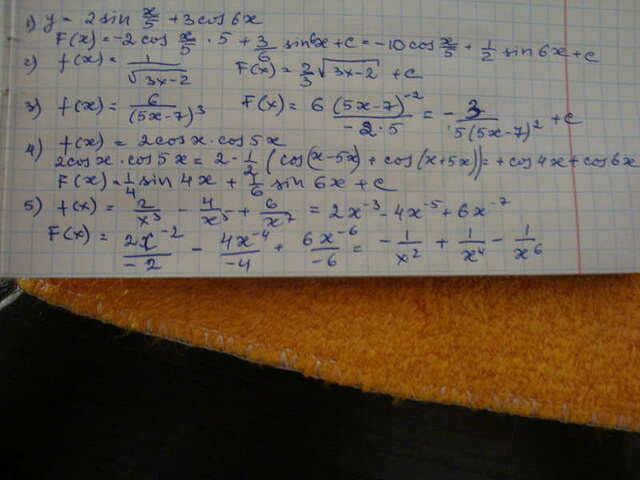 1) y = 2 sin x/5 + 3 cos 6x
F(x) = -2 cos x/5 · 5 + 3/6 sin 6x + c = -10 cos x/5 + 1/2 sin 6x + c
2) f(x) = 1/√(3x-2) F(x) = 2/3 √(3x-2) + c
3) f(x) = 6/(5x-7)³ F(x) = 6 (5x-7)⁻²/(-2·5) = - 3/(5(5x-7)²) + c
4) f(x) = 2cosx · cos5x
2cosx · cos5x = 2 · 1/2 (cos(x-5x) + cos(x+5x)) = + cos4x + cos6x
F(x) = 1/4 sin 4x + 1/6 sin 6x + c
5) f(x) = 2/x³ - 4/x⁵ + 6/x⁷ = 2x⁻³ - 4x⁻⁵ + 6x⁻⁷
F(x) = 2x⁻²/-2 - 4x⁻⁴/-4 + 6x⁻⁶/-6 = - 1/x² + 1/x⁴ - 1/x⁶